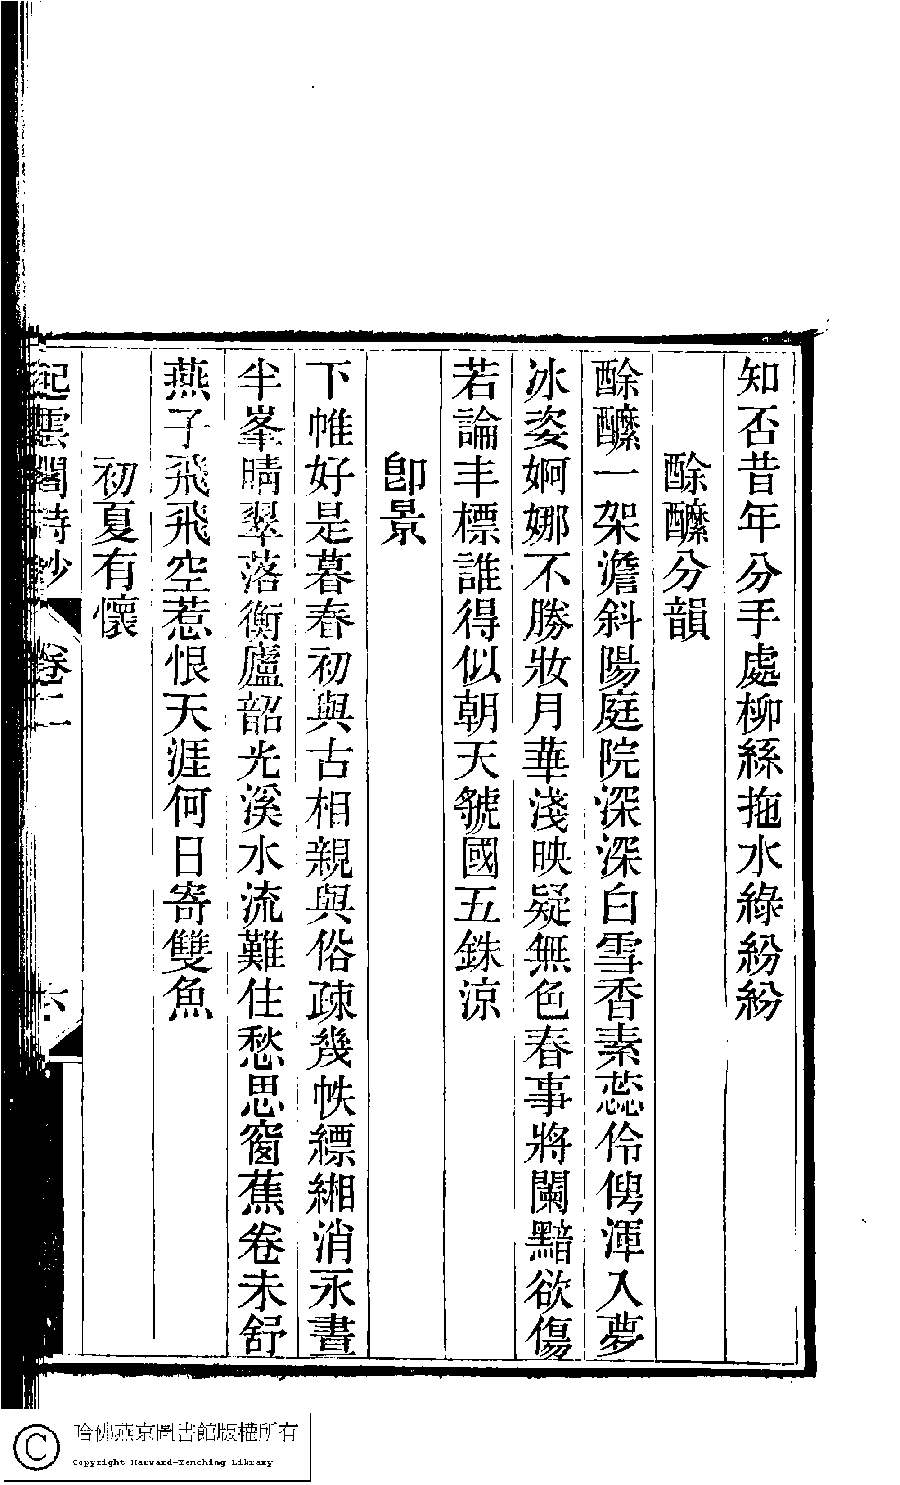 知否昔年分手處柳絲拖水綠紛紛
酴醾分韻
酴醾一架澹斜陽庭院深深白雪香素蕊伶俜渾入夢
冰姿婀娜不勝妝月華淺映疑無色春事將闌黯欲傷
若論丰標誰得似朝天虢國五銖涼
卽景
下帷好是暮春初與古相親與俗疎幾帙縹緗消永晝
半峯晴翠落衡廬韶光溪水流難住愁思窗蕉卷未舒
燕子飛飛空惹恨天涯何日寄雙魚
初夏有懷
起雲閣詩鈔 卷二 六
哈佛燕京圖書館版權所有
Copyright Harvard-Yenching Library